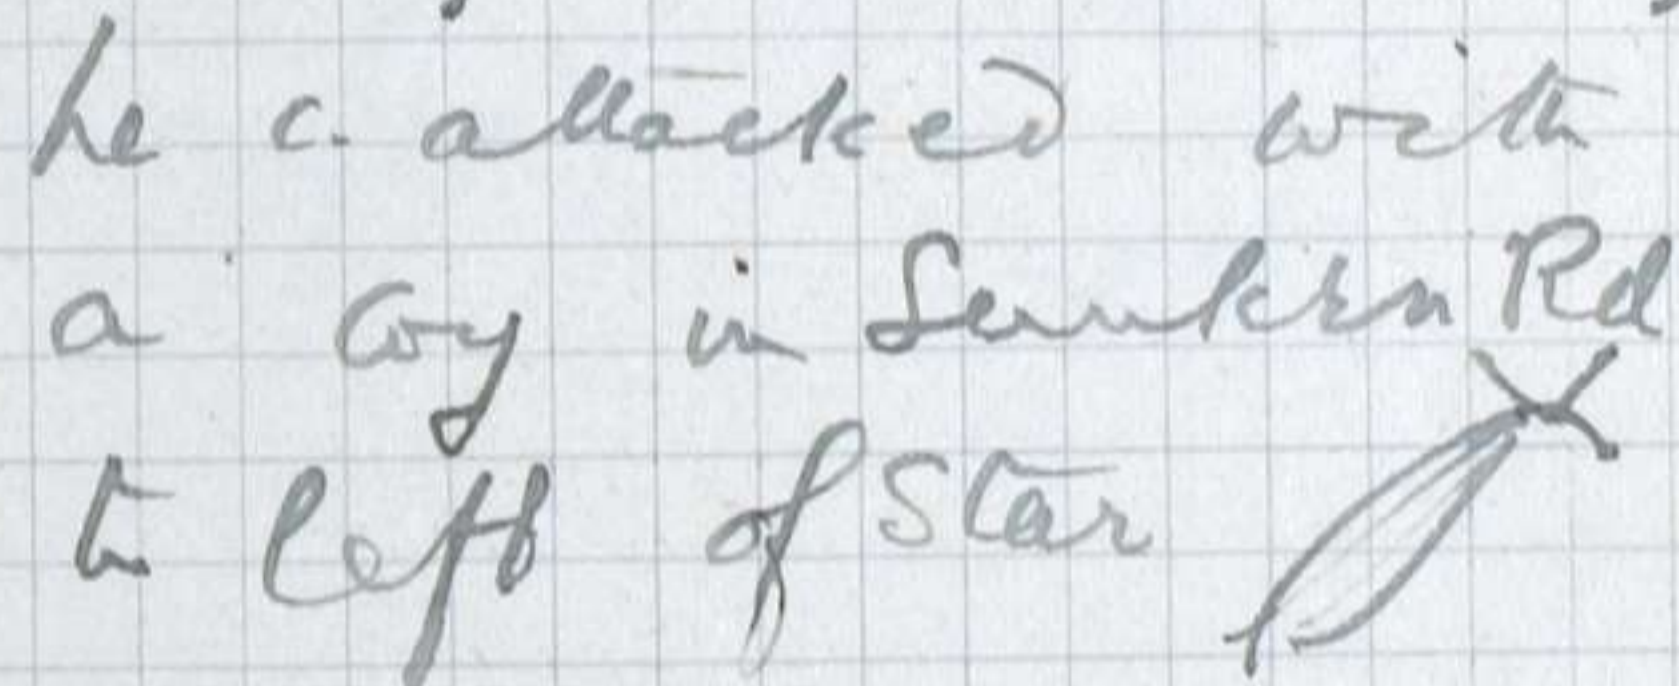 he c. attacked with
a Coy in Sunken Rd
to left of Star